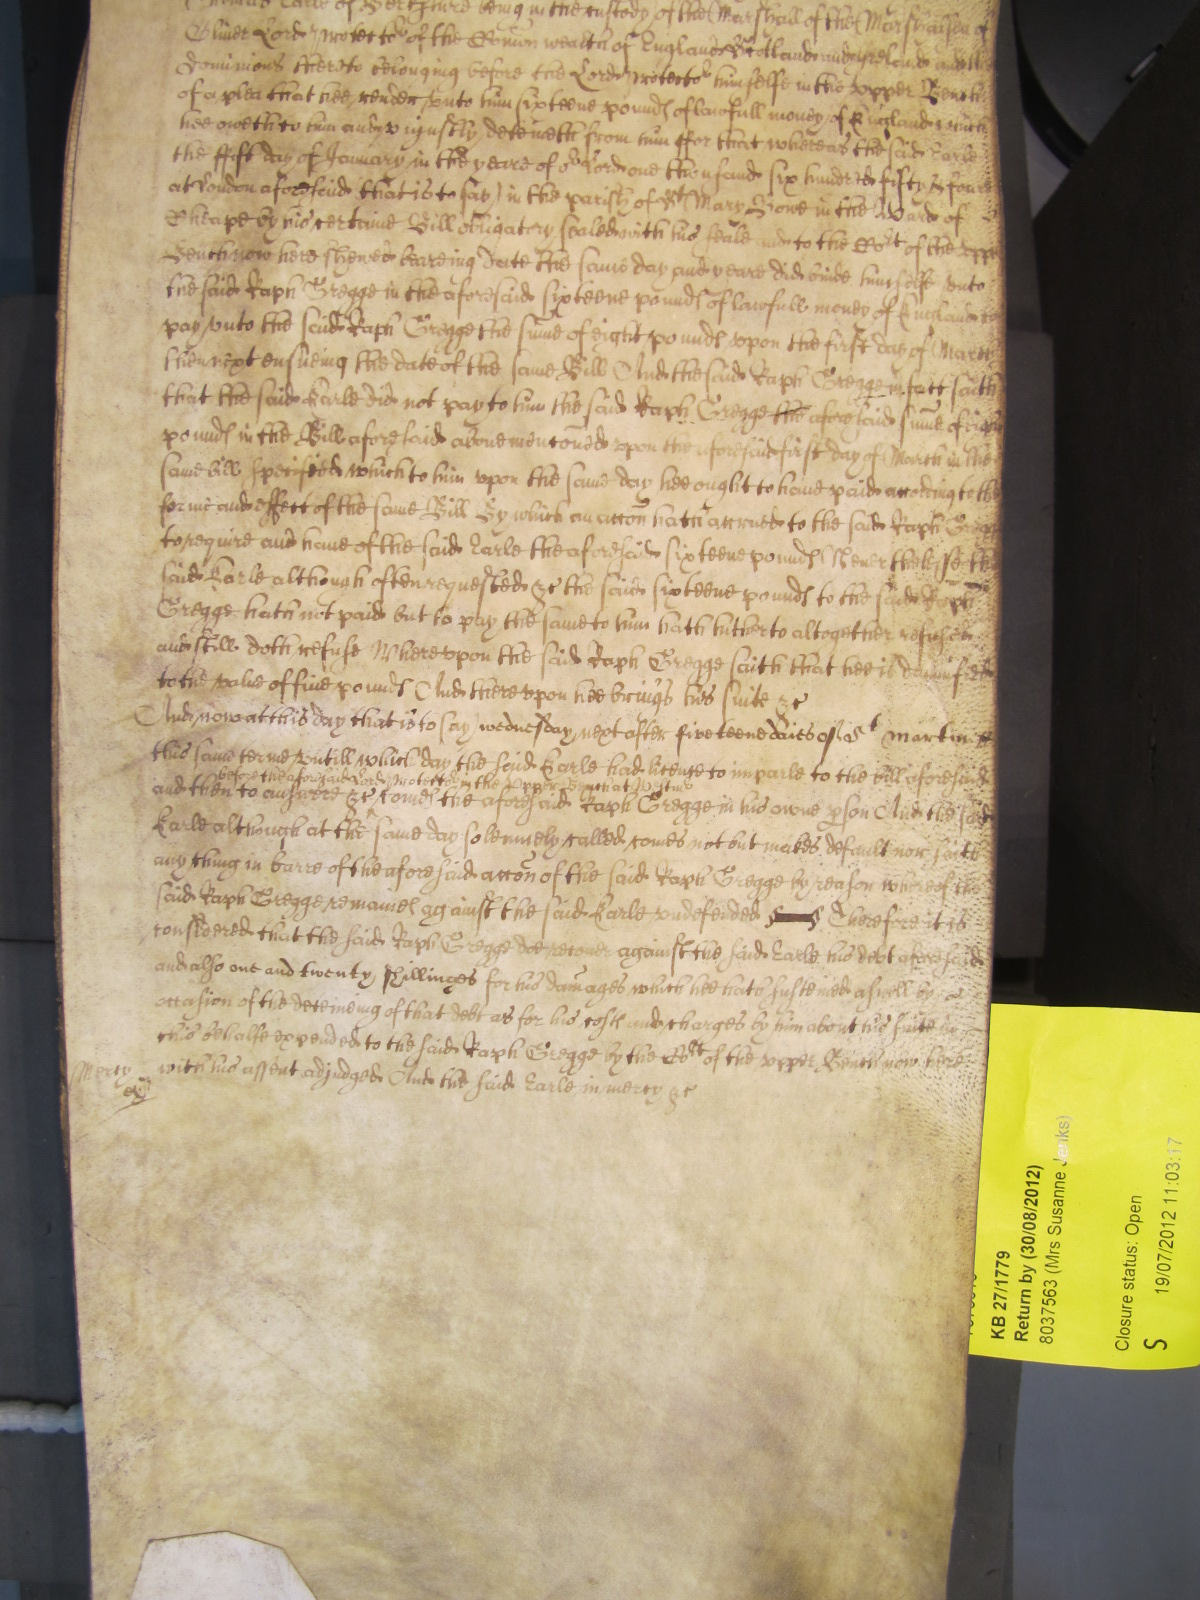 Thomas Earle of Berkshire being in the custody of the Marshall of the Marshalsea of
Oliver Lord Protector of the Comon wealth of England Scotland and Ireland and the
dominions thereto belonging before the Lord Protector himselfe in the Vpper Bench
of a plea that hee render vnto him sixteene pounds of lawfull money of England which
hee oweth to him and vniustly deteineth from him ffor that whereas the said Earle
the first day of January in the yeare of our Lord one thousand six hundred fifty & foure
at London aforesaid that is to say in the parish of St Mary Bowe in the Ward of
Cheape by his certaine Bill obligatory sealed with his seale and to the Cort of the vpper
Bench now here shewed beareing date the same day and yeare did binde himselfe vnto
the said Raph Gregge in the aforesaid sixteene pounds of lawfull money of England to
pay vnto the said Raph Gregge the sume of eight pounds vpon the first day of March
then next ensueing the date of the same Bill And the said Raph Gregge in fact saith
that the said Earle did not pay to him the said Raph Gregge the aforesaid sume of eight
pounds in the Bill aforesaid above menconed vpon the aforesaid first day of March in the
same bill specified which to him vpon the same day hee ought to haue paid according to the
forme and effect of the same Bill By which an accon hath accrued to the said Raph Gregg
to require and haue of the said Earle the aforesaid sixteene pounds Neverthelesse the
said Earle although often requested &c the said sixteene pounds to the said Raph
Gregge hath not paid but to pay the same to him hath hitherto altogether refused
and still doth refuse Wherevpon the said Raph Gregge saith that hee is damnified
to the value of fiue pounds And therevpon hee brings his suite &c
And now at this day that is to say wednesday next after fiveteene daies of St Martin
this same terme vntill which day the said Earle had licence to imparle to the bill aforesaid
before the aforesaid Lord Protector in the Vpper Bench at Westmr
and then to answere &c comes the aforesaid Raph Gregge in his owne pson And the said
Earle although at the same day solemnely called comes not but makes default nor saith
any thing in barre of the aforesaid accon of the said Raph Gregge by reason whereof the
said Raph Gregge remaines against the said Earle vndefended Therefore it is
considered that the said Raph Gregge doe recouer against the said Earle his debt aforesaid
and also one and twenty shillinges for his damages which hee hath susteined aswell by
occasion of the deteineing of that debt as for his costs and charges by him about his suite in
this behalfe expended to the said Raph Gregge by the Cort of the vpper Bench now here
Mercy with his assent adjudged And the said Earle in mercy &c
KB 27/1779
Return by (30/08/2012)
8037563 (Mrs Susanne Jenks)
Closure status: Open
S 19/07/2012 11:03:17